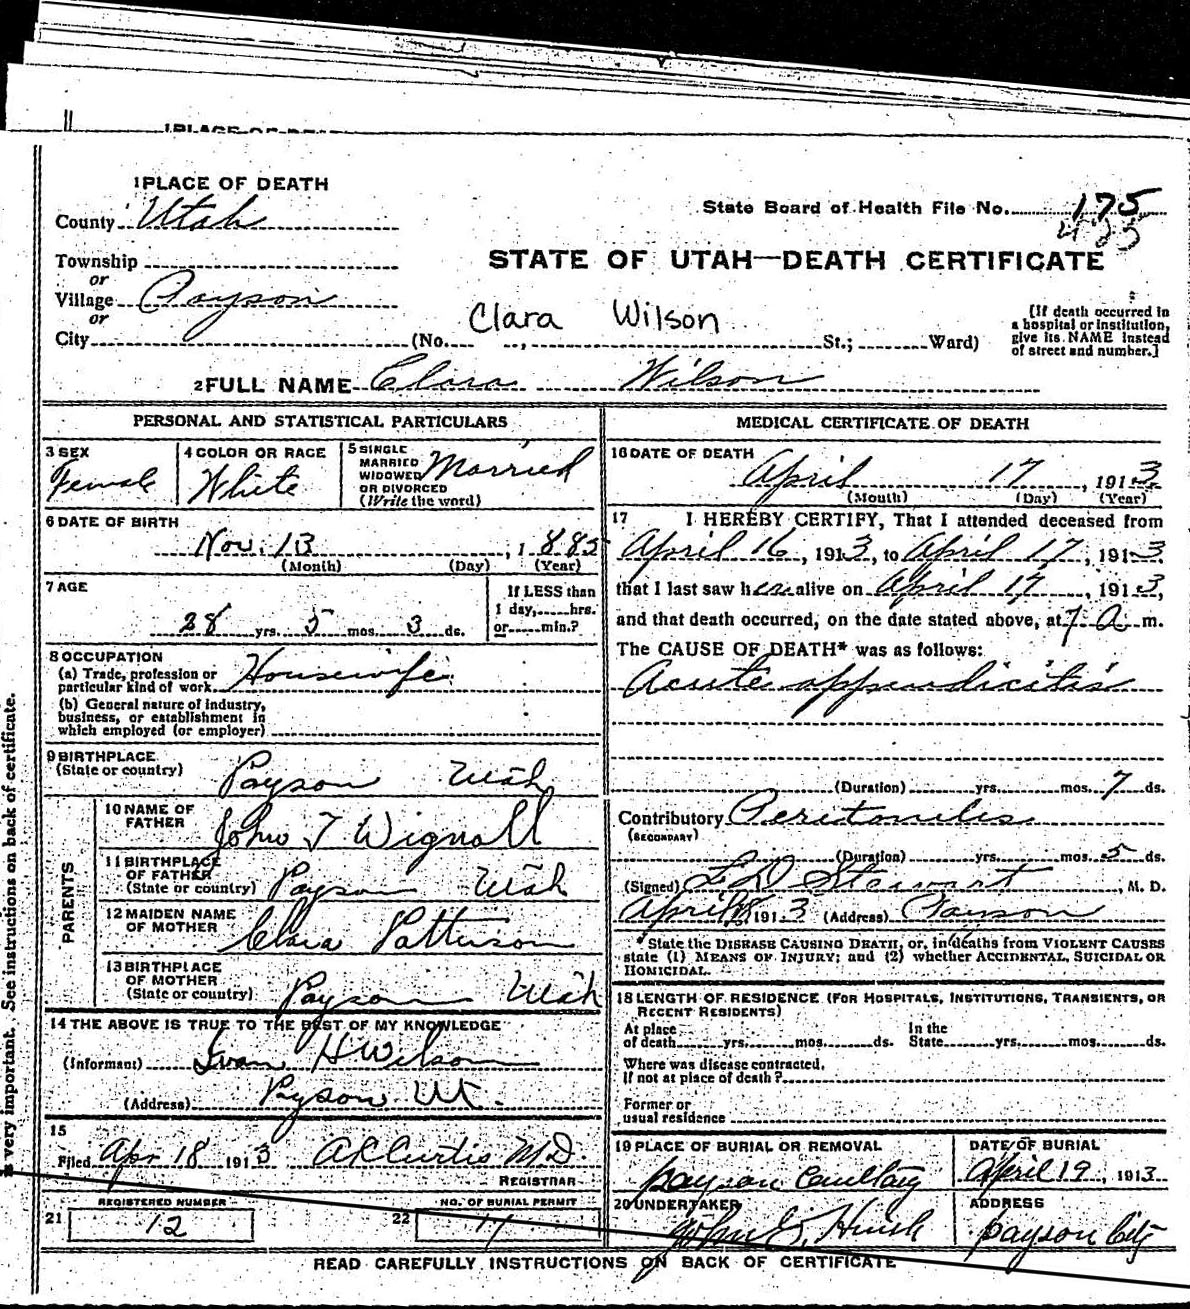 1 PLACE OF DEATH
County Utah
State Board of Health File No. 175
425
Township
or
Village Payson
or
City
STATE OF UTAH—DEATH CERTIFICATE
Clara Wilson
(No. , St.; Ward)
[If death occurred in
a hospital or institution,
give its NAME instead
of street and number.]
2 FULL NAME Clara Wilson
PERSONAL AND STATISTICAL PARTICULARS
3 SEX
Female
4 COLOR OR RACE
White
5 SINGLE
MARRIED
WIDOWED
OR DIVORCED
(Write the word)
Married
6 DATE OF BIRTH
Nov. 13, 1885
(Month) (Day) (Year)
7 AGE
28 yrs. 5 mos. 3 ds.
If LESS than
1 day, hrs.
or min.?
8 OCCUPATION
(a) Trade, profession or
particular kind of work Housewife
(b) General nature of industry,
business, or establishment in
which employed (or employer)
9 BIRTHPLACE
(State or country) Payson Utah
PARENTS
10 NAME OF
FATHER John T Wignall
11 BIRTHPLACE
OF FATHER
(State or country) Payson Utah
12 MAIDEN NAME
OF MOTHER Clara Patterson
13 BIRTHPLACE
OF MOTHER
(State or country) Payson Utah
14 THE ABOVE IS TRUE TO THE BEST OF MY KNOWLEDGE
(Informant) Ivan H Wilson
(Address) Payson Ut.
15
Filed Apr 18 1913 A L Curtis M.D.
REGISTRAR
REGISTERED NUMBER
21 12
NO. OF BURIAL PERMIT
22 11
MEDICAL CERTIFICATE OF DEATH
16 DATE OF DEATH
April 17, 1913
(Month) (Day) (Year)
17 I HEREBY CERTIFY, That I attended deceased from
April 16, 1913, to April 17, 1913
that I last saw her alive on April 17, 1913,
and that death occurred, on the date stated above, at 7 A m.
The CAUSE OF DEATH* was as follows:
Acute appendicitis
(Duration) yrs. mos. 7 ds.
Contributory Peritonitis
(SECONDARY)
(Duration) yrs. mos. 5 ds.
(Signed) L D Stewart, M. D.
April 18, 1913 (Address) Payson
*State the DISEASE CAUSING DEATH, or, in deaths from VIOLENT CAUSES
state (1) MEANS OF INJURY; and (2) whether ACCIDENTAL, SUICIDAL OR
HOMICIDAL.
18 LENGTH OF RESIDENCE (FOR HOSPITALS, INSTITUTIONS, TRANSIENTS, OR
RECENT RESIDENTS)
At place
of death yrs. mos. ds.
In the
State yrs. mos. ds.
Where was disease contracted,
if not at place of death?
Former or
usual residence
19 PLACE OF BURIAL OR REMOVAL
Payson Cemetary
DATE OF BURIAL
April 19, 1913
20 UNDERTAKER
John
ADDRESS
Payson City
READ CAREFULLY INSTRUCTIONS ON BACK OF CERTIFICATE
is very important. See instructions on back of certificate.